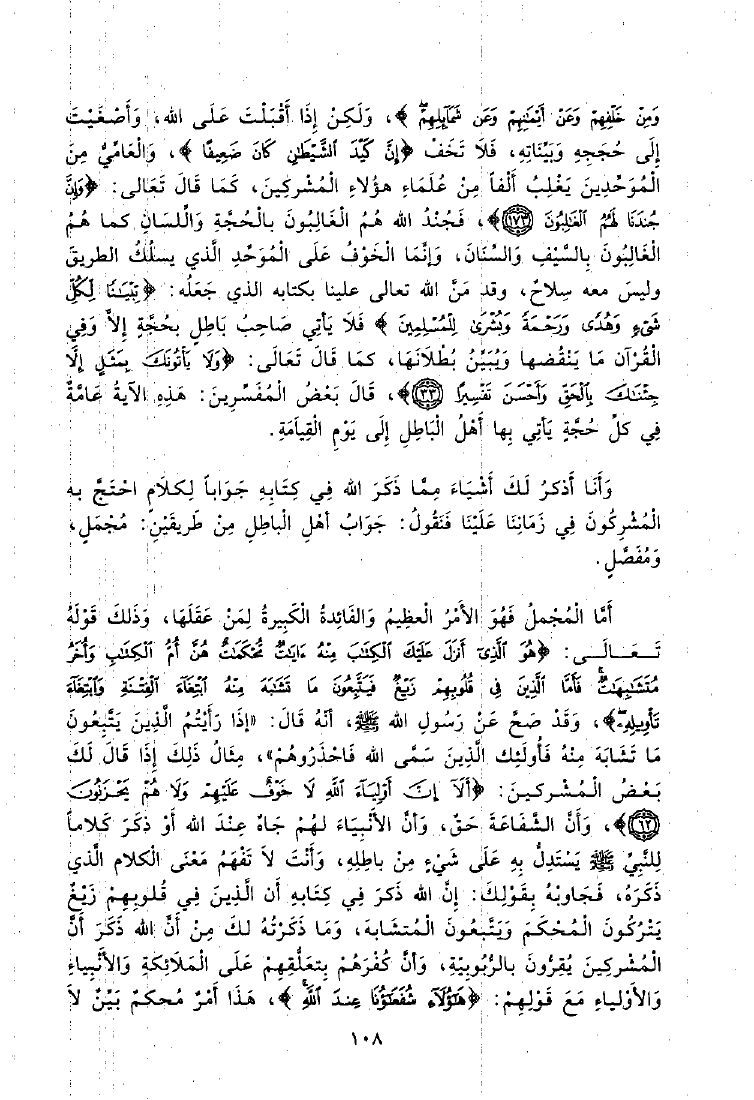 وَمِنْ خَلْفِهِمْ وَعَنْ أَيْمَٰنِهِمْ وَعَن شَمَآئِلِهِمْ ﴾، وَلَكِنْ إِذَا أَقْبَلْتَ عَلَى الله، وَأَصْغَيْتَ
إِلَى حُجَجِهِ وَبَيِّنَاتِهِ، فَلَا تَخَفْ ﴿إِنَّ كَيْدَ ٱلشَّيْطَٰنِ كَانَ ضَعِيفًا ﴾، وَالْعَامِّيُّ مِنَ
الْمُوَحِّدِينَ يَغْلِبُ أَلْفاً مِنْ عُلَمَاءِ هؤُلَاءِ الْمُشْرِكِينَ، كَمَا قَالَ تَعَالَى: ﴿وَإِنَّ
جُندَنَا لَهُمُ ٱلْغَٰلِبُونَ ١٧٣﴾، فَجُنْدُ الله هُمُ الْغَالِبُونَ بالْحُجَّةِ وَاللِّسانِ كما هُمُ
الْغَالِبُونَ بِالسَّيْفِ وَالسِّنَانِ، وَإِنَّمَا الْخَوْفُ عَلَى الْمُوَحِّدِ الَّذي يسلُكُ الطريقَ
وليسَ معه سِلاحٌ، وقد مَنَّ الله تعالى علينا بكتابه الذي جَعَلَه: ﴿تِبْيَٰنًا لِّكُلِّ
شَىْءٍ وَهُدًى وَرَحْمَةً وَبُشْرَىٰ لِلْمُسْلِمِينَ ﴾ فَلَا يأتي صَاحِبُ بَاطِلٍ بحُجَّةٍ إلاَّ وَفِي
الْقُرآنِ مَا يَنْقُضها وَيُبَيِّنُ بُطْلَانَهَا، كمَا قَالَ تَعَالَى: ﴿وَلَا يَأْتُونَكَ بِمَثَلٍ إِلَّا
جِئْنَٰكَ بِٱلْحَقِّ وَأَحْسَنَ تَفْسِيرًا ٣٣﴾، قَالَ بَعْضُ الْمُفَسِّرينَ: هَذِهِ الآيةُ عَامَّةٌ
فِي كلِّ حُجَّةٍ يَأتي بِها أَهْلُ الْبَاطلِ إِلَى يَوْمِ الْقِيَامَةِ.
وَأَنَا أَذكرُ لَكَ أَشْيَاءَ مِمَّا ذَكَرَ الله فِي كِتَابِهِ جَوَاباً لِكلَامٍ احْتَجَّ به
الْمُشْرِكُونَ فِي زَمَانِنَا عَلَيْنَا فَنَقُولُ: جَوَابُ أهْلِ الْباطلِ مِنْ طَريقَيْنِ: مُجْمَلٍ،
وَمُفَصَّلٍ.
أَمَّا الْمُجْملُ فَهُوَ الأَمْرُ الْعظِيمُ وَالْفَائِدةُ الْكَبِيرةُ لِمَنْ عَقَلَهَا، وَذَلكَ قَوْلُهُ
تَعَالَى: ﴿هُوَ ٱلَّذِىٓ أَنزَلَ عَلَيْكَ ٱلْكِتَٰبَ مِنْهُ ءَايَٰتٌ مُّحْكَمَٰتٌ هُنَّ أُمُّ ٱلْكِتَٰبِ وَأُخَرُ
مُتَشَٰبِهَٰتٌ فَأَمَّا ٱلَّذِينَ فِى قُلُوبِهِمْ زَيْغٌ فَيَتَّبِعُونَ مَا تَشَٰبَهَ مِنْهُ ٱبْتِغَآءَ ٱلْفِتْنَةِ وَٱبْتِغَآءَ
تَأْوِيلِهِۦ﴾، وَقَدْ صَحَّ عَنْ رَسُولِ الله ﷺ، أَنَّهُ قَالَ: «إذَا رَأَيْتُمُ الَّذِينَ يَتَّبِعُونَ
مَا تَشَابَهَ مِنْهُ فَأُولَئِكَ الَّذِينَ سَمَّى الله فَاحْذَرُوهُمْ»، مِثَالُ ذَلِكَ إِذَا قَالَ لَكَ
بَعْضُ الْمُشْركينَ: ﴿أَلَآ إِنَّ أَوْلِيَآءَ ٱللَّهِ لَا خَوْفٌ عَلَيْهِمْ وَلَا هُمْ يَحْزَنُونَ
٦٢﴾، وَأَنَّ الشَّفَاعَةَ حَقٌّ، وَأنَّ الأَنْبِيَاءَ لهُمْ جَاهٌ عِنْدَ الله أَوْ ذَكَرَ كَلَاماً
لِلنَّبِيِّ ﷺ يَسْتَدِلُّ بِهِ عَلَى شَيْءٍ مِنْ بَاطِلِهِ، وَأَنْتَ لَا تَفْهَمُ مَعْنَى الْكلَامِ الَّذي
ذَكَرَهُ، فَجَاوِبْهُ بِقَوْلِكَ: إِنَّ الله ذَكَرَ فِي كِتَابِهِ أَن الَّذينَ فِي قُلوبِهِمْ زَيْغٌ
يَتْرُكُونَ الْمُحْكَمَ وَيَتَّبعُونَ الْمُتشابهَ، وَمَا ذَكَرْتُهُ لكَ مِنْ أَنَّ الله ذَكَرَ أَنَّ
الْمُشْرِكِينَ يُقِرُّونَ بِالرُّبُوبِيَّةِ، وَأنَّ كُفْرَهُمْ بِتعَلُّقِهِمْ عَلَى الْمَلَائِكَةِ وَالأَنْبِيَاءِ
وَالأَوْلِياءِ مَعَ قَوْلِهِمْ: ﴿هَٰٓؤُلَآءِ شُفَعَٰٓؤُنَا عِندَ ٱللَّهِ ﴾، هَذَا أَمْرٌ مُحكمٌ بَيِّنٌ لَا
١٠٨